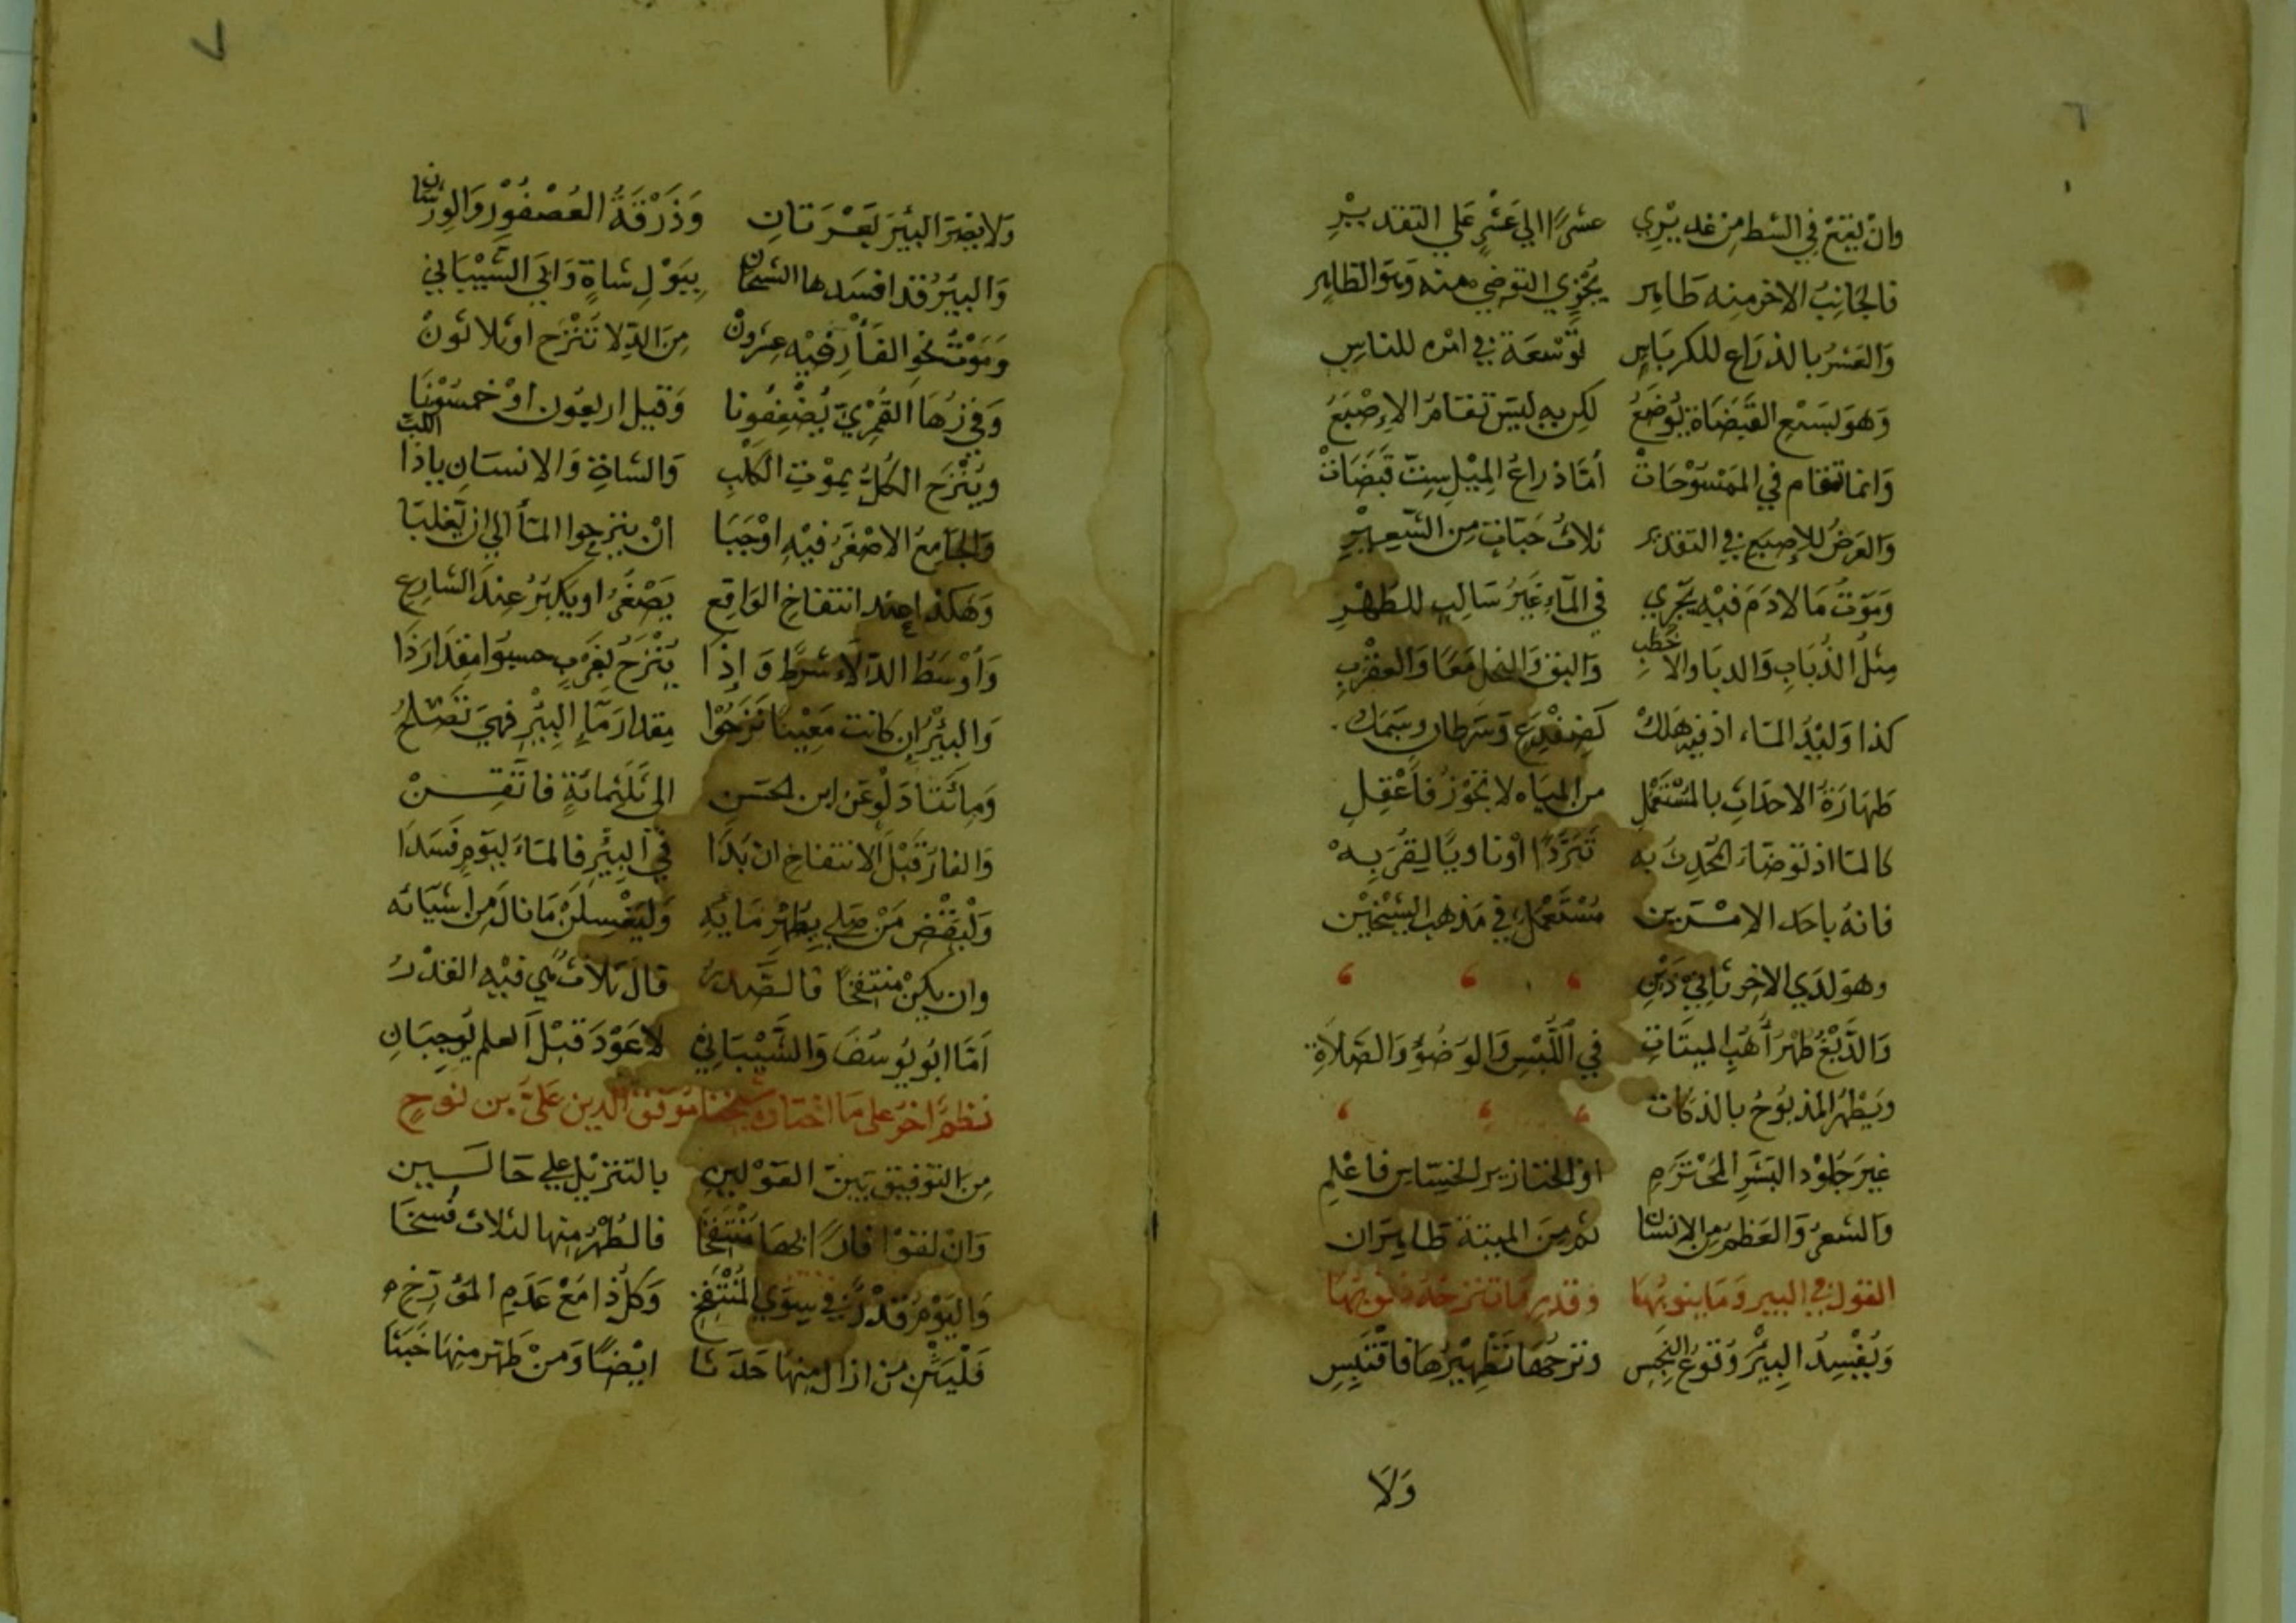 ٦
وَانْ يَقَعْ فِي الشط مِنْ غَدِيْرِي عَشْرًا اِلي عَشْرٍ عَلي التقديْرِ
فالجانِبُ الاخر مِنه طَاهِر يُجْزِي التوضي منه وَهوَ الظاهِر
وَالعَشْرُ بالذرَاعِ للكربَاسِ تَوْسَعَة في امْرِهِ للناسِ
وَهوَ بسَبْعِ القَبَضَاة يُوضَعُ لكِن بهِ ليسَ تقَامُ الاِصْبَعُ
وَانمَا تقام في المَمْسُوْحَاتْ امَّا ذراعُ المِيْلِ سِتّ قَبَضَاتْ
وَالعَرضُ للاِصبَعِ في التقدير ثلاثُ حَبّاتٍ مِن الشّعِيْرِ
وَمَوتُ مَا لا دَمَ فيْهِ يَجْرِي في المآءِ غَيْرُ سَالِبٍ للطُهْرِ
مِثلُ الذُبَابِ وَالدبَا والاخْطَبِ وَالبقِ وَالنحلِ مَعًا وَالعقْرَبِ
كذا وَليْدُ المَاء اذ فيْهِ هَلكْ كَضِفْدِعٍ وَسَرَطانٍ وسَمَك
طهَارَةُ الاحدَاثِ بالمُسْتَعْمَلِ من المِيَاه لا تَجُوْزُ فاَعْقِلِ
كالمَا اذ تَوضأ المُحْدِثُ بِه تَبَرُّدًا اوْ ناويًا لِقُرَبِهْ
فانهُ باحَد الامْرَين مُسْتَعْمَلٌ في مَذهبِ الشيْخَيْن
وهوَ لدَي الاخِرِ ثانِيْ ذَيْنِ
وَالدَّبْغُ طهْرُ اُهُبِ الميتَاتِ في اللُّبْسِ وَالوضُوْءِ وَالصَلاةِ
ويَطْهُر المَذبُوْحُ بالذكَات
غَيرَ جلُوْدِ البَشَرِ المُحْترَمِ اوْ الخنَازيرِ الخِسَاسِ فاعْلمِ
وَالشعرُ وَالعَظمُ مِن الانسَان ثم مِنَ الميتة طاهِرَان
القول في البير وَمَا ينوبُهَا وقدر مَا تنزحُهُ ذنُوبُهَا
وَيُفْسِدُ البِيْرَ وُقوْعُ النَجِس ونزحُهَا تَطْهِيْرُهَا فاقتَبِسِ
وَلاَ
٧
وَلا يضرّ البيرَ بَعْرَتانِ وَذَرْقَةُ العُصْفُوْرِ وَالورشان
وَالبيْرُ قد افسَدها الشيخَان بِبَوْلِ شاةٍ وَابَي الشَيْبَاني
وَمَوْتُ نحوِ الفَأْرِ فيْهِ عِشرون مِنَ الدِلا تُنْزَح او ثلاثونْ
وَفي زُهَا القُمْرِيّ يُضْعِفُونا وَقيل اربعُون اوْ خمسُوْنَا
ويُنْزَح الكُلُّ بِمَوْتِ الكَلْبِ وَالشاةِ وَالانسَانِ يا ذا اللبّ
وَالجَامِعُ الاصْغَرُ فيْهِ اوْجَبَا انْ ينزحوا المَا الي ان يَغلِبَا
وَهكذا عند انتفاخِ الوَاقِع يَصْغُرُ او يَكبُرُ عِندَ الشارِع
وَاَوْسَطُ الدّلاءِ شَرط وَإذَا يُنْزَحُ بغَرْبٍ حسبوا مِقدَارَ ذَا
وَالبِئْرُ اِن كانت مَعِيْنًا نزَحُوْا مِقدارَ مَآءِ البِئْرِ فهيَ تَصْلحُ
وَمِائتَا دَلْوٍ عَن ابن الحَسَنِ الي ثَلَثمائةٍ فاتْقِــنْ
وَالفارُ قَبْلَ الانتفاخِ ان بَدَا في البِئْرِ فالمَاءُ ليَومٍ فَسَدَا
وَلْيَقْضِ مَنْ صَلي بِطُهْرِ مَائِهِ وَليَغْسِلَنْ مَا نالَ مِن اَشيَائه
وان يكنْ مُنتفخًا فالصَّدرُ قالَ ثلاثٌ هي فيْهِ القدْرُ
اَمّا ابُو يُوسُفَ وَالشَّيْبَانِي لا عَوْدَ قَبْلَ العلم يُوجِبَانِ
نظمٌ اخرُ على مَا اختارَه شيخنا مُوَفق الدين عَليّ بن نوحٍ
مِن التوفيق بَيْنَ القوْلينِ بالتنزيْلِ علي حَالــين
وَانْ لقَوْا فارًا بهَا مُنْتَفِخَا فالطُهْرُ مِنها لثلاث فُسِخَا
وَاليَوْمُ قدْرٌ في سِوَي المُنْتَفِخِ وَكلُ ذا مَعْ عَدَمِ المؤَرِّخِ
فَلْيَبْنِ مَن ازال مِنهَا حَدَثا ايضًا وَمَنْ طَهّر مِنهَا خَبَثا